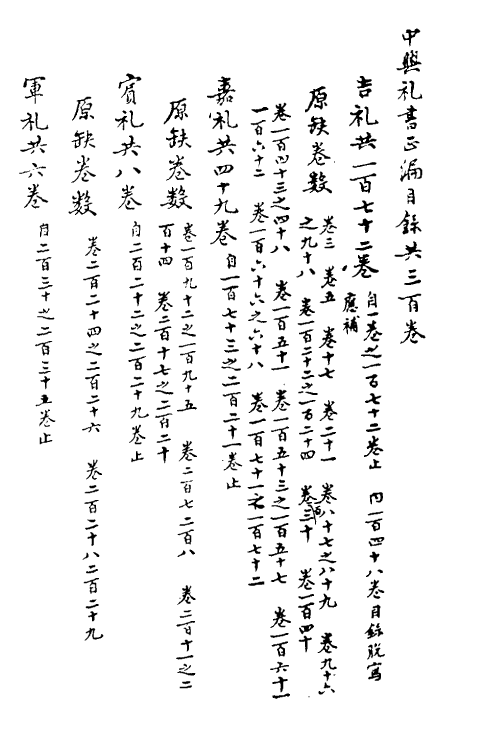 中興礼書正漏目錄共三百卷
吉礼共一百七十二卷 自一卷之一百七十二卷止 內一百四十八卷目錄脫寫應補
原缺卷数 卷三 卷五 卷十七 卷二十一 卷八十七之八十九 卷九十六
之九十八 卷一百二十二之一百二十四 卷一百三十 卷一百四十
卷一百四十三之四十八 卷一百五十一 卷一百五十三之一百五十七 卷一百六十一
一百六十二 卷一百六十六之六十八 卷一百七十一 一百七十二
嘉礼共四十九卷 自一百七十三之二百二十一卷止
原缺卷数 卷一百九十二之一百九十五 卷二百七二百八 卷二百十一之二
百十四 卷二百十七之二百二十
賓礼共八卷 自二百二十二之二百二十九卷止
原缺卷数 卷二百二十四之二百二十六 卷二百二十八二百二十九
軍礼共六卷 自二百三十之二百三十五卷止